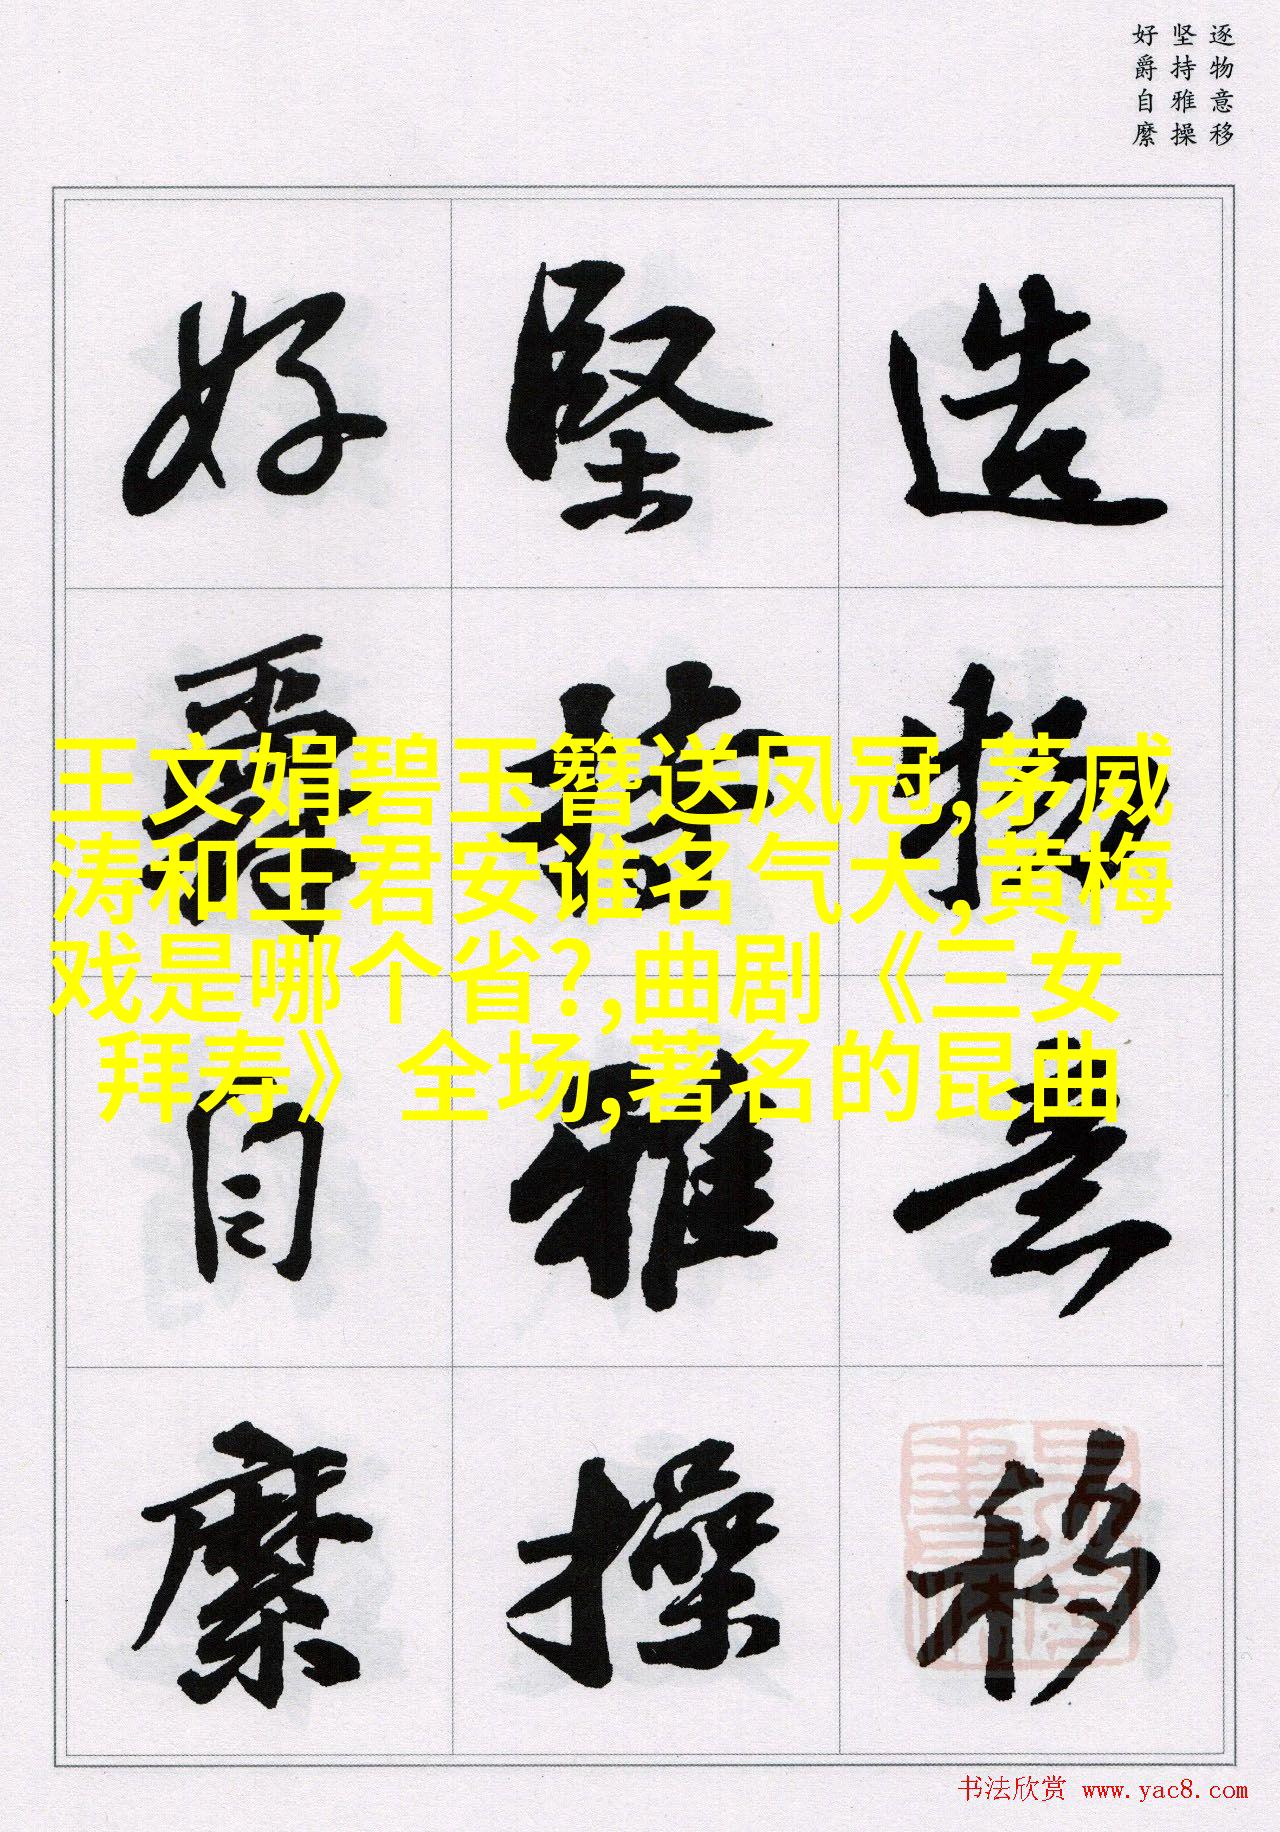 逐物意移
坚持雅操
好爵自縻
造物意移
堅持雅操
好爵自縻
王文娟碧玉簪送凤冠,茅威
涛和王君安谁名气大,黄梅
戏是哪个省?,曲剧《三女
拜寿》全场,著名的昆曲
书法欣赏 www.yac8.com